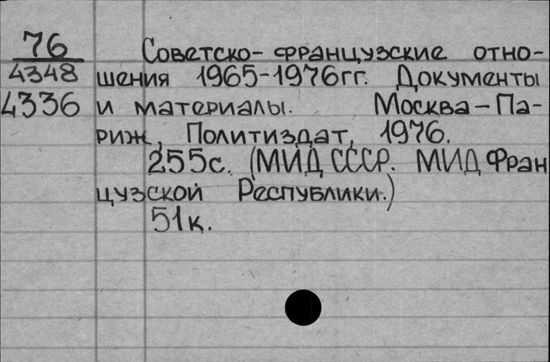 76 Советско-французские отно-
4348 шения 1965-1976гг. Документы
4336 и материалы. Москва-Па-
риж, Политиздат, 1976.
255с. (МИД СССР. МИД Фран
цузской Республики.)
51к.